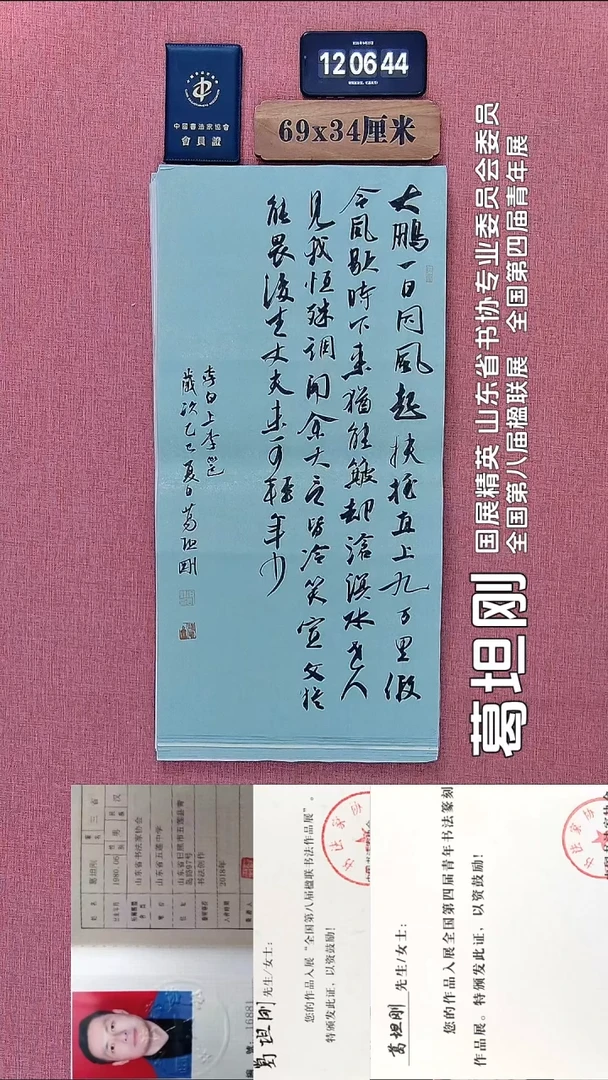 中國書法家協會
會員證
12 06 44
69x34厘米
大鵬一日同風起扶搖直上九万里假
令風歇時下来猶能簸却滄溟水世人
見我恒殊調聞余大言皆冷笑宣父猶
能畏後生丈夫未可輕年少
李白上李邕
歲次乙巳夏日葛坦剛
葛坦刚
国展精英 山东省书协专业委员会委员
全国第八届楹联展 全国第四届青年展
山东省书法家协会
山东省五莲中学
书法创作
2018年
16881
葛坦刚 先生/女士：
您的作品入展“全国第八届楹联书法作品展”。
特颁发此证，以资鼓励！
葛坦刚 先生/女士：
您的作品入展全国第四届青年书法篆刻
作品展。特颁发此证，以资鼓励！